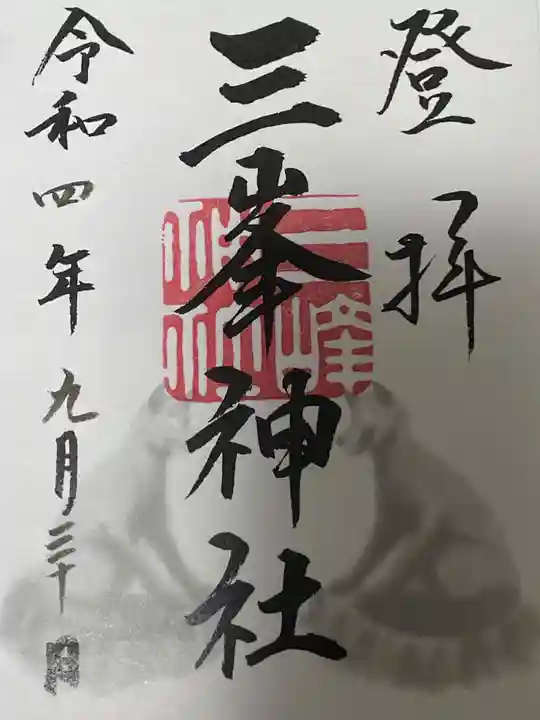 登拝
三峯神社
令和四年九月三十日